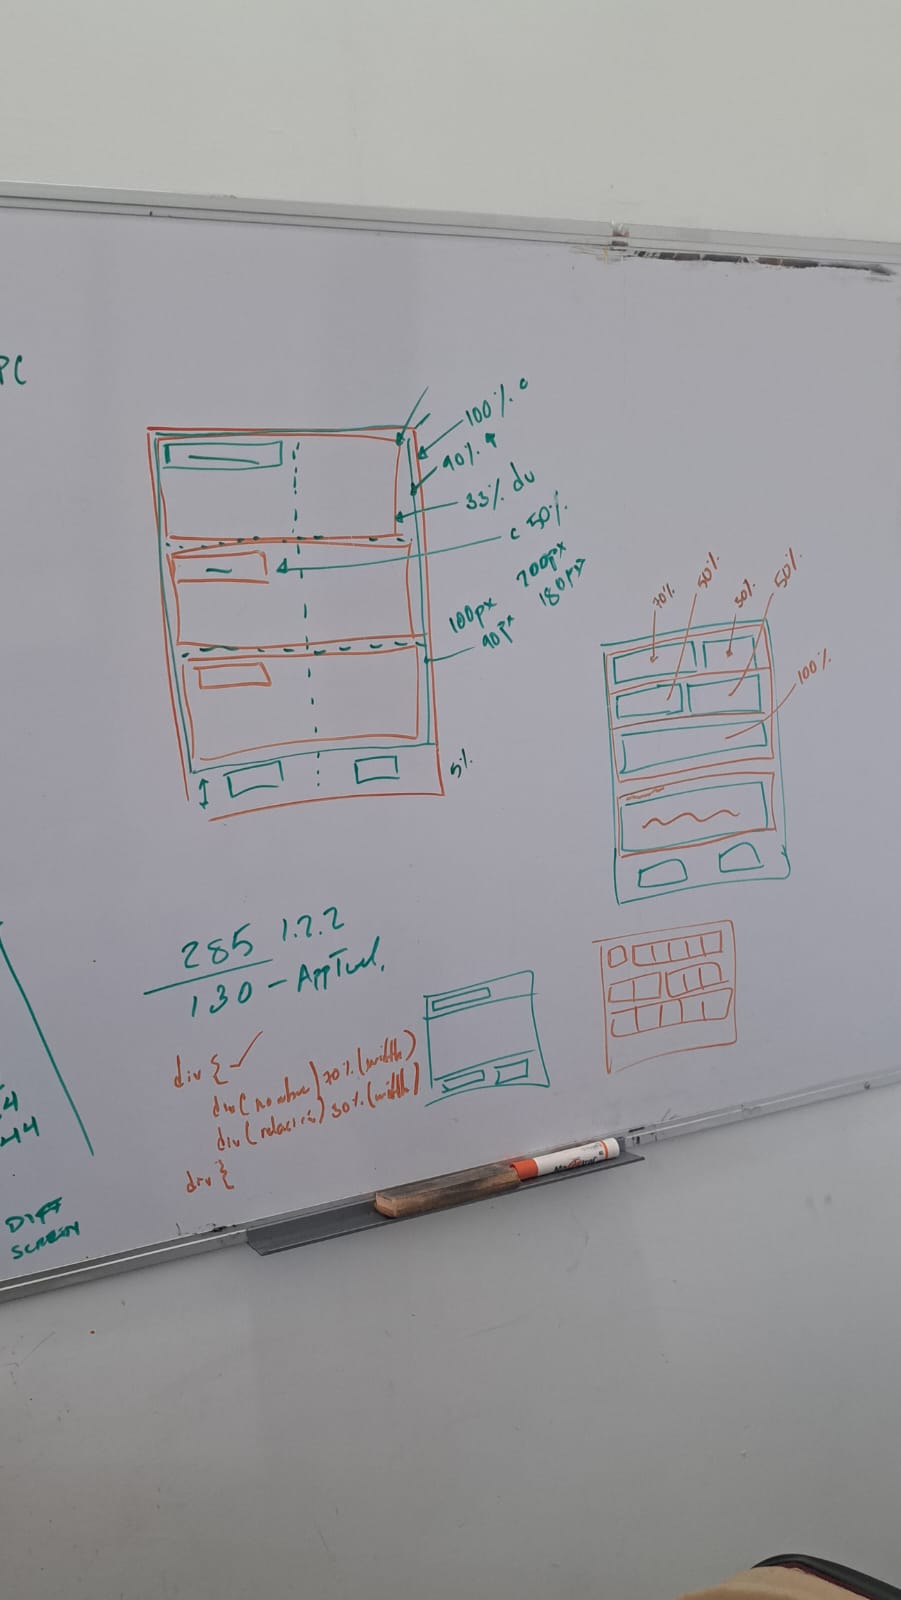 PC
100% c
90%
33% du
c 50%
100px 200px
90px 180px
5%
70% 50% 30% 50%
100%
285 1.2.2
130 -
div {
div (nombre) 70% (width)
div (relación) 30% (width)
div {
4
44
DIFF
SCREEN